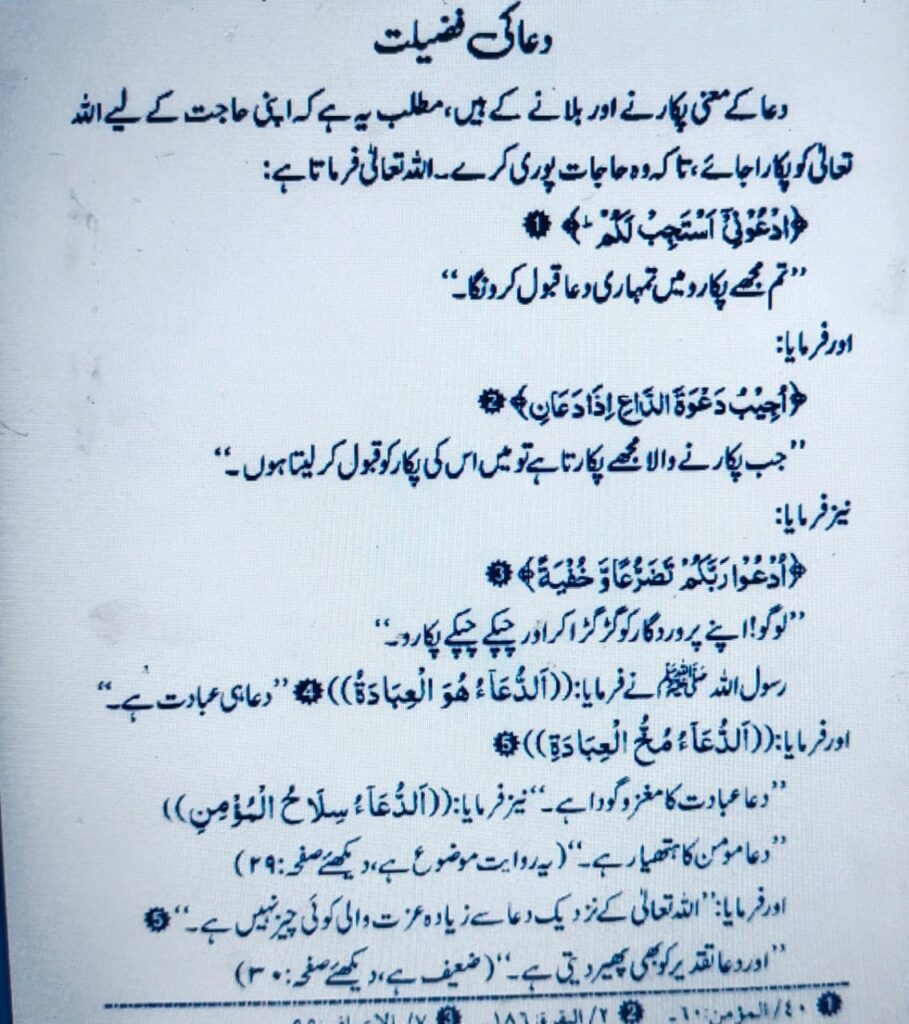 دعا کی فضیلت
دعا کے معنی پکارنے اور بلانے کے ہیں، مطلب یہ ہے کہ اپنی حاجت کے لیے اللہ
تعالیٰ کو پکارا جائے، تاکہ وہ حاجات پوری کرے۔ اللہ تعالیٰ فرماتا ہے:
﴿ادْعُوْنِیْۤ اَسْتَجِبْ لَكُمْ ؕ﴾ ❶
”تم مجھے پکارو میں تمہاری دعا قبول کرونگا۔“
اور فرمایا:
﴿اُجِیْبُ دَعْوَةَ الدَّاعِ اِذَا دَعَانِ﴾ ❷
”جب پکارنے والا مجھے پکارتا ہے تو میں اس کی پکار کو قبول کر لیتا ہوں۔“
نیز فرمایا:
﴿اُدْعُوْا رَبَّكُمْ تَضَرُّعًا وَّ خُفْیَةً﴾ ❸
”لوگو! اپنے پروردگار کو گڑگڑا کر اور چپکے چپکے پکارو۔“
رسول اللہ ﷺ نے فرمایا: ((اَلدُّعَآءُ هُوَ الْعِبَادَةُ)) ❹ ”دعا ہی عبادت ہے۔“
اور فرمایا: ((اَلدُّعَآءُ مُخُّ الْعِبَادَةِ)) ❺
”دعا عبادت کا مغز و گودا ہے۔“ نیز فرمایا: ((اَلدُّعَآءُ سِلَاحُ الْمُؤْمِنِ))
”دعا مومن کا ہتھیار ہے۔“ (یہ روایت موضوع ہے، دیکھئے صفحہ: ۲۹)
اور فرمایا: ”اللہ تعالیٰ کے نزدیک دعا سے زیادہ عزت والی کوئی چیز نہیں ہے۔“ ❺
”اور دعا تقدیر کو بھی پھیر دیتی ہے۔“ (ضعیف ہے، دیکھئے صفحہ: ۳۰)
❶ ۴۰/المؤمن: ۶۰۔ ❷ ۲/البقرة: ۱۸۶۔ ❸ ۷/